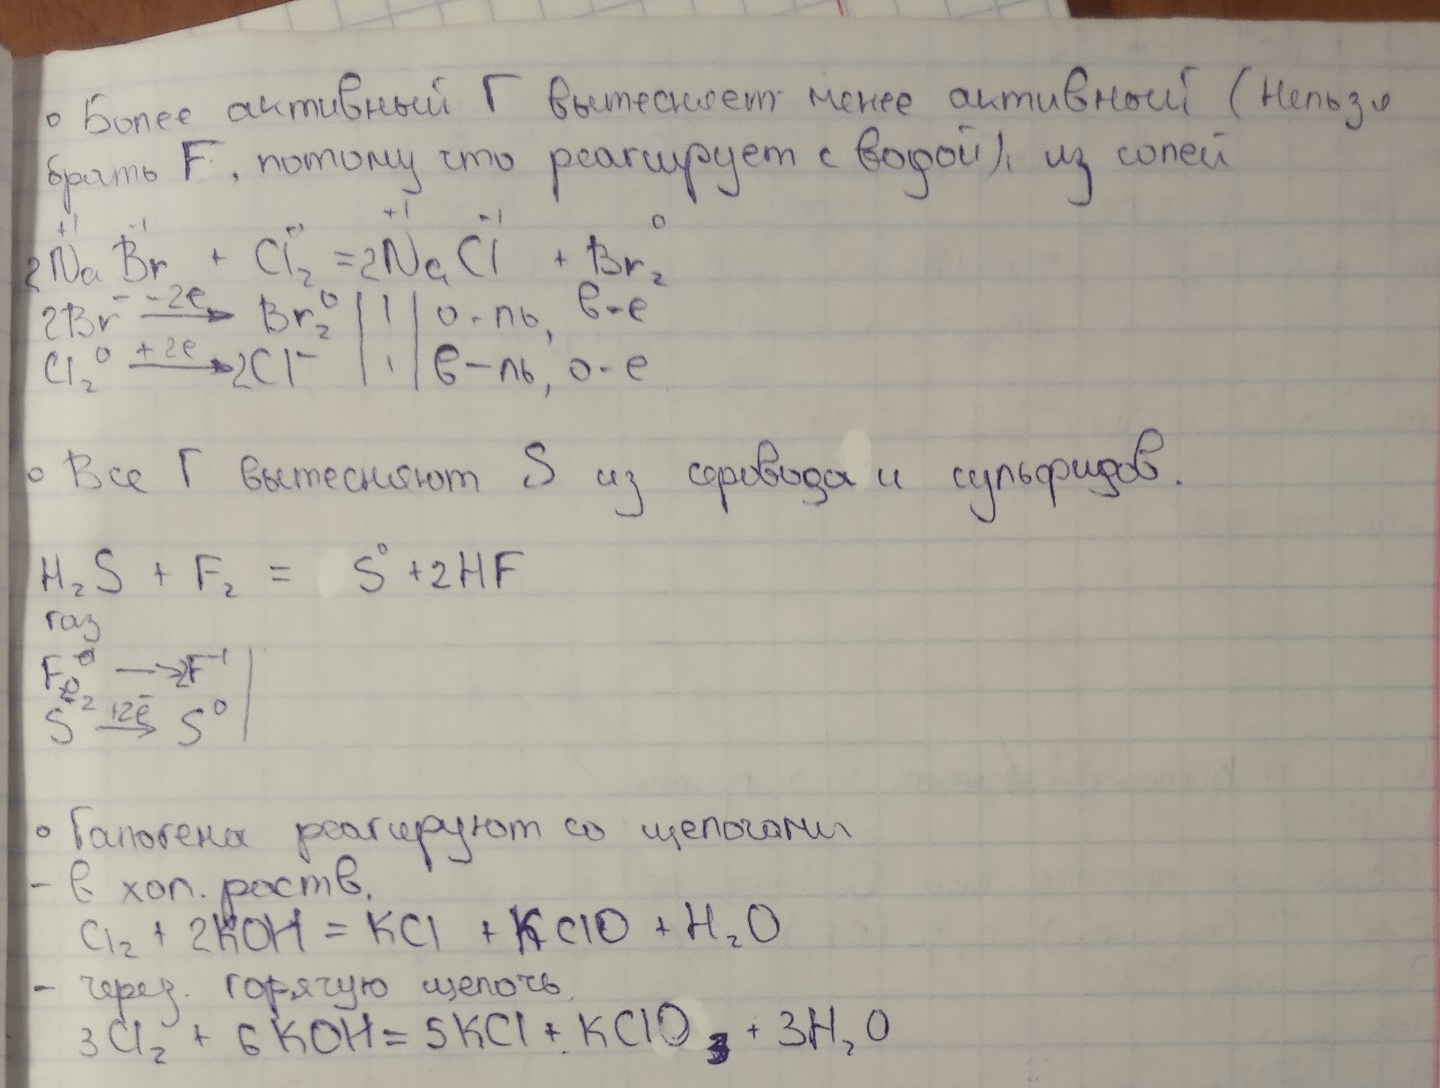 ∘ Более активный Г вытесняет менее активный (Нельзя
брать F, потому что реагирует с водой), из солей
2Na⁺¹Br⁻¹ + Cl₂⁰ = 2Na⁺¹Cl⁻¹ + Br₂⁰
2Br⁻ –2e→ Br₂⁰ | 1 | о-ль, в-е
Cl₂⁰ +2e→ 2Cl⁻ | 1 | в-ль, о-е
∘ Все Г вытесняют S из серовода и сульфидов.
H₂S + F₂ = S⁰ + 2HF
газ
F₂⁰ → 2F⁻¹ |
S⁻² +2ē→ S⁰ |
∘ Галогена реагируют со щелочами
- в хол. раств.
Cl₂ + 2KOH = KCl + KClO + H₂O
- через. горячую щелочь
3Cl₂ + 6KOH = 5KCl + KClO₃ + 3H₂O